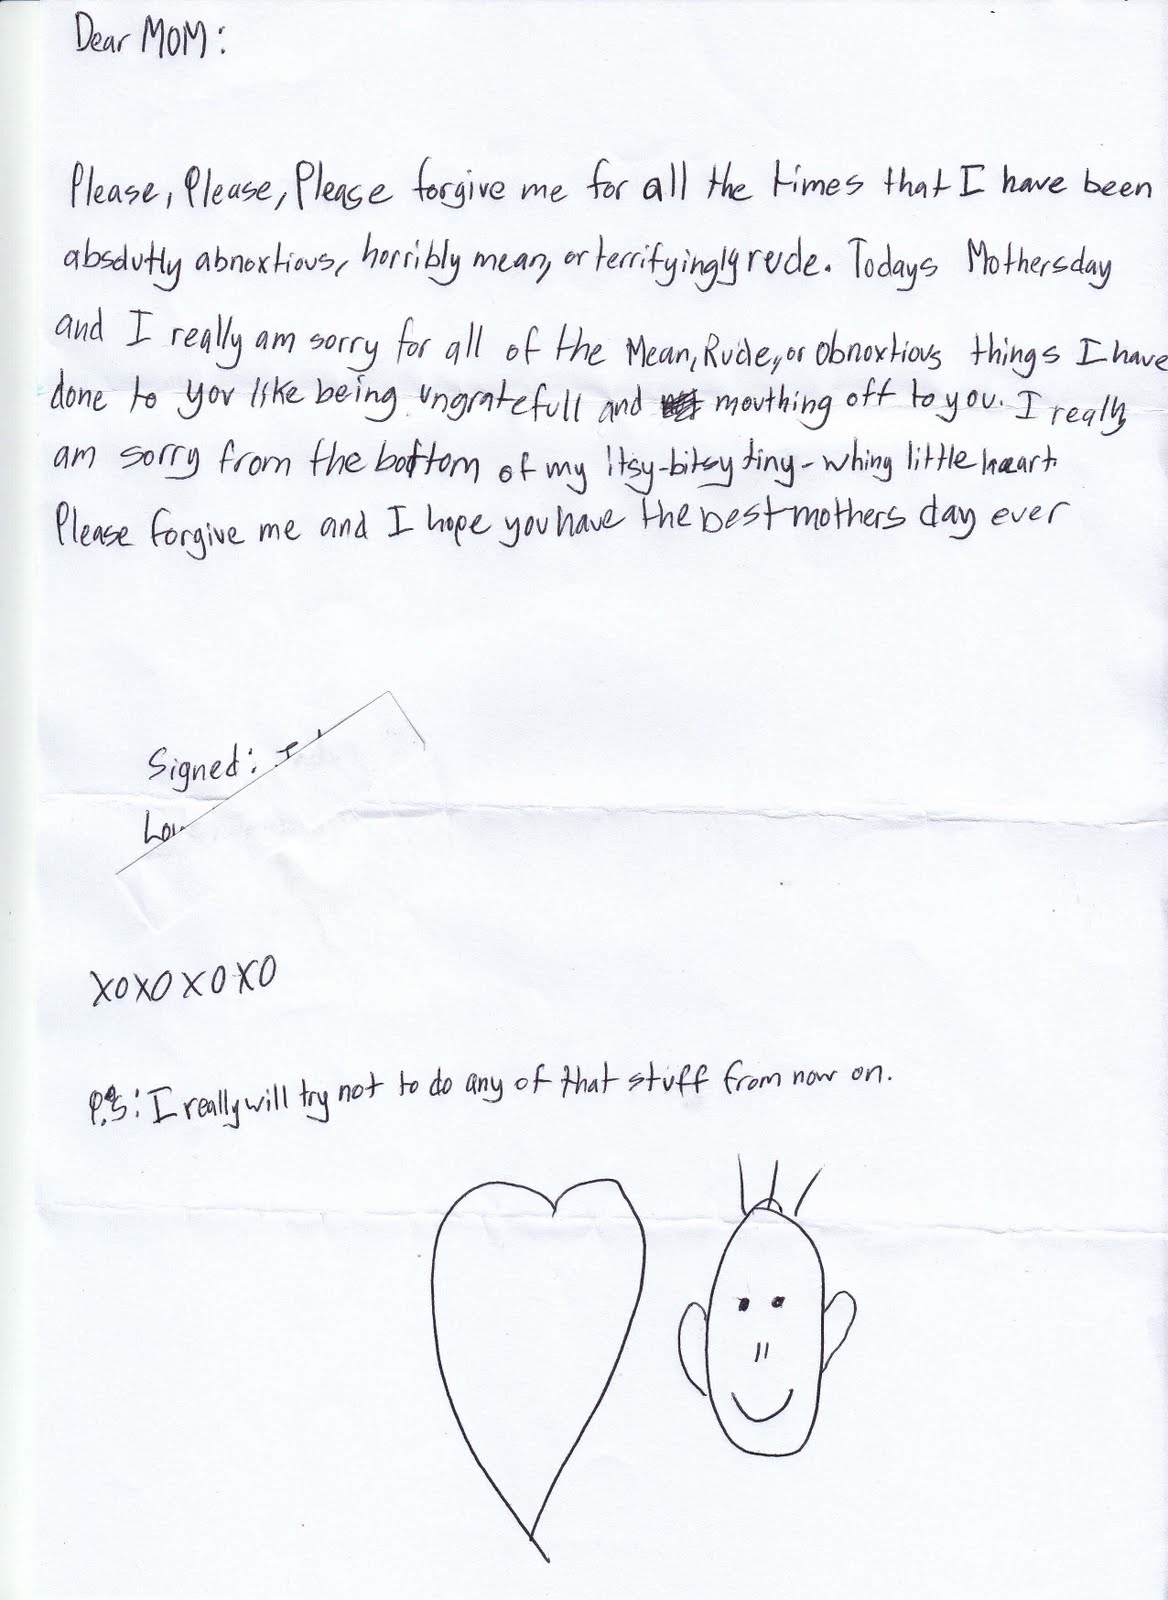 Dear MOM:
Please, Please, Please forgive me for all the times that I have been
absolutly abnoxtious, horribly mean, or terrifyingly rude. Todays Mothersday
and I really am sorry for all of the Mean, Rude, or Obnoxtious things I have
done to you like being ungratefull and mouthing off to you. I really
am sorry from the bottom of my itsy-bitsy tiny-whing little heart
Please forgive me and I hope you have the best mothers day ever
Signed:
XOXOXOXO
P.S: I really will try not to do any of that stuff from now on.